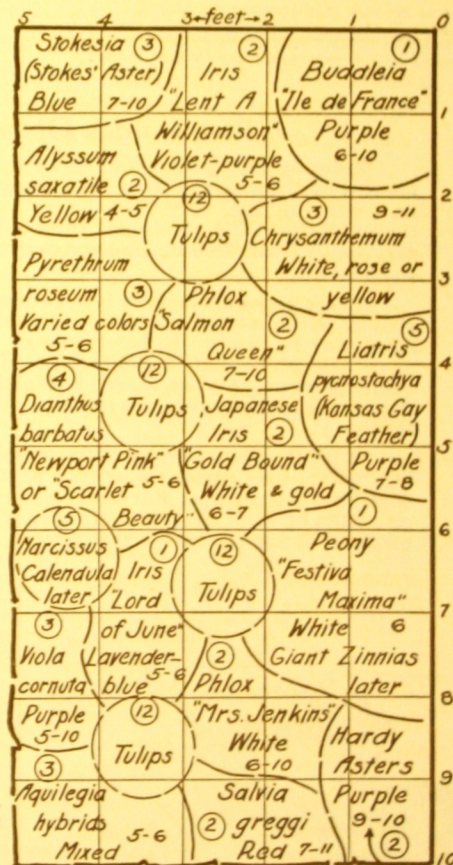 5 4 3 ←feet→ 2 1 0
Stokesia ③
(Stokes' Aster)
Blue 7-10
②
Iris
"Lent A
Williamson"
Violet-purple
5-6
①
Buddleia
"Ile de France"
Purple
6-10
1
Alyssum
saxatile ②
Yellow 4-5
⑫
Tulips
2
③ 9-11
Chrysanthemum
White, rose or
yellow
3
Pyrethrum
roseum ③
Varied colors
5-6
Phlox
"Salmon ②
Queen"
7-10
⑤
Liatris
pycnostachya
(Kansas Gay
Feather)
Purple
7-8
4
④
Dianthus
barbatus
"Newport Pink"
or "Scarlet 5-6
Beauty"
⑫
Tulips
Japanese
Iris ②
"Gold Bound"
White & gold
6-7
5
⑤
Narcissus
Calendula
later
①
Iris
"Lord
of June"
Lavender-
blue 5-6
⑫
Tulips
6
①
Peony
"Festiva
Maxima"
White 6
Giant Zinnias
later
7
③
Viola
cornuta
Purple
5-10
②
Phlox
"Mrs. Jenkins"
White
6-10
8
⑫
Tulips
Hardy
Asters
Purple
9-10
②
9
③
Aquilegia
hybrids
Mixed 5-6
Salvia
② greggi
Red 7-11
10